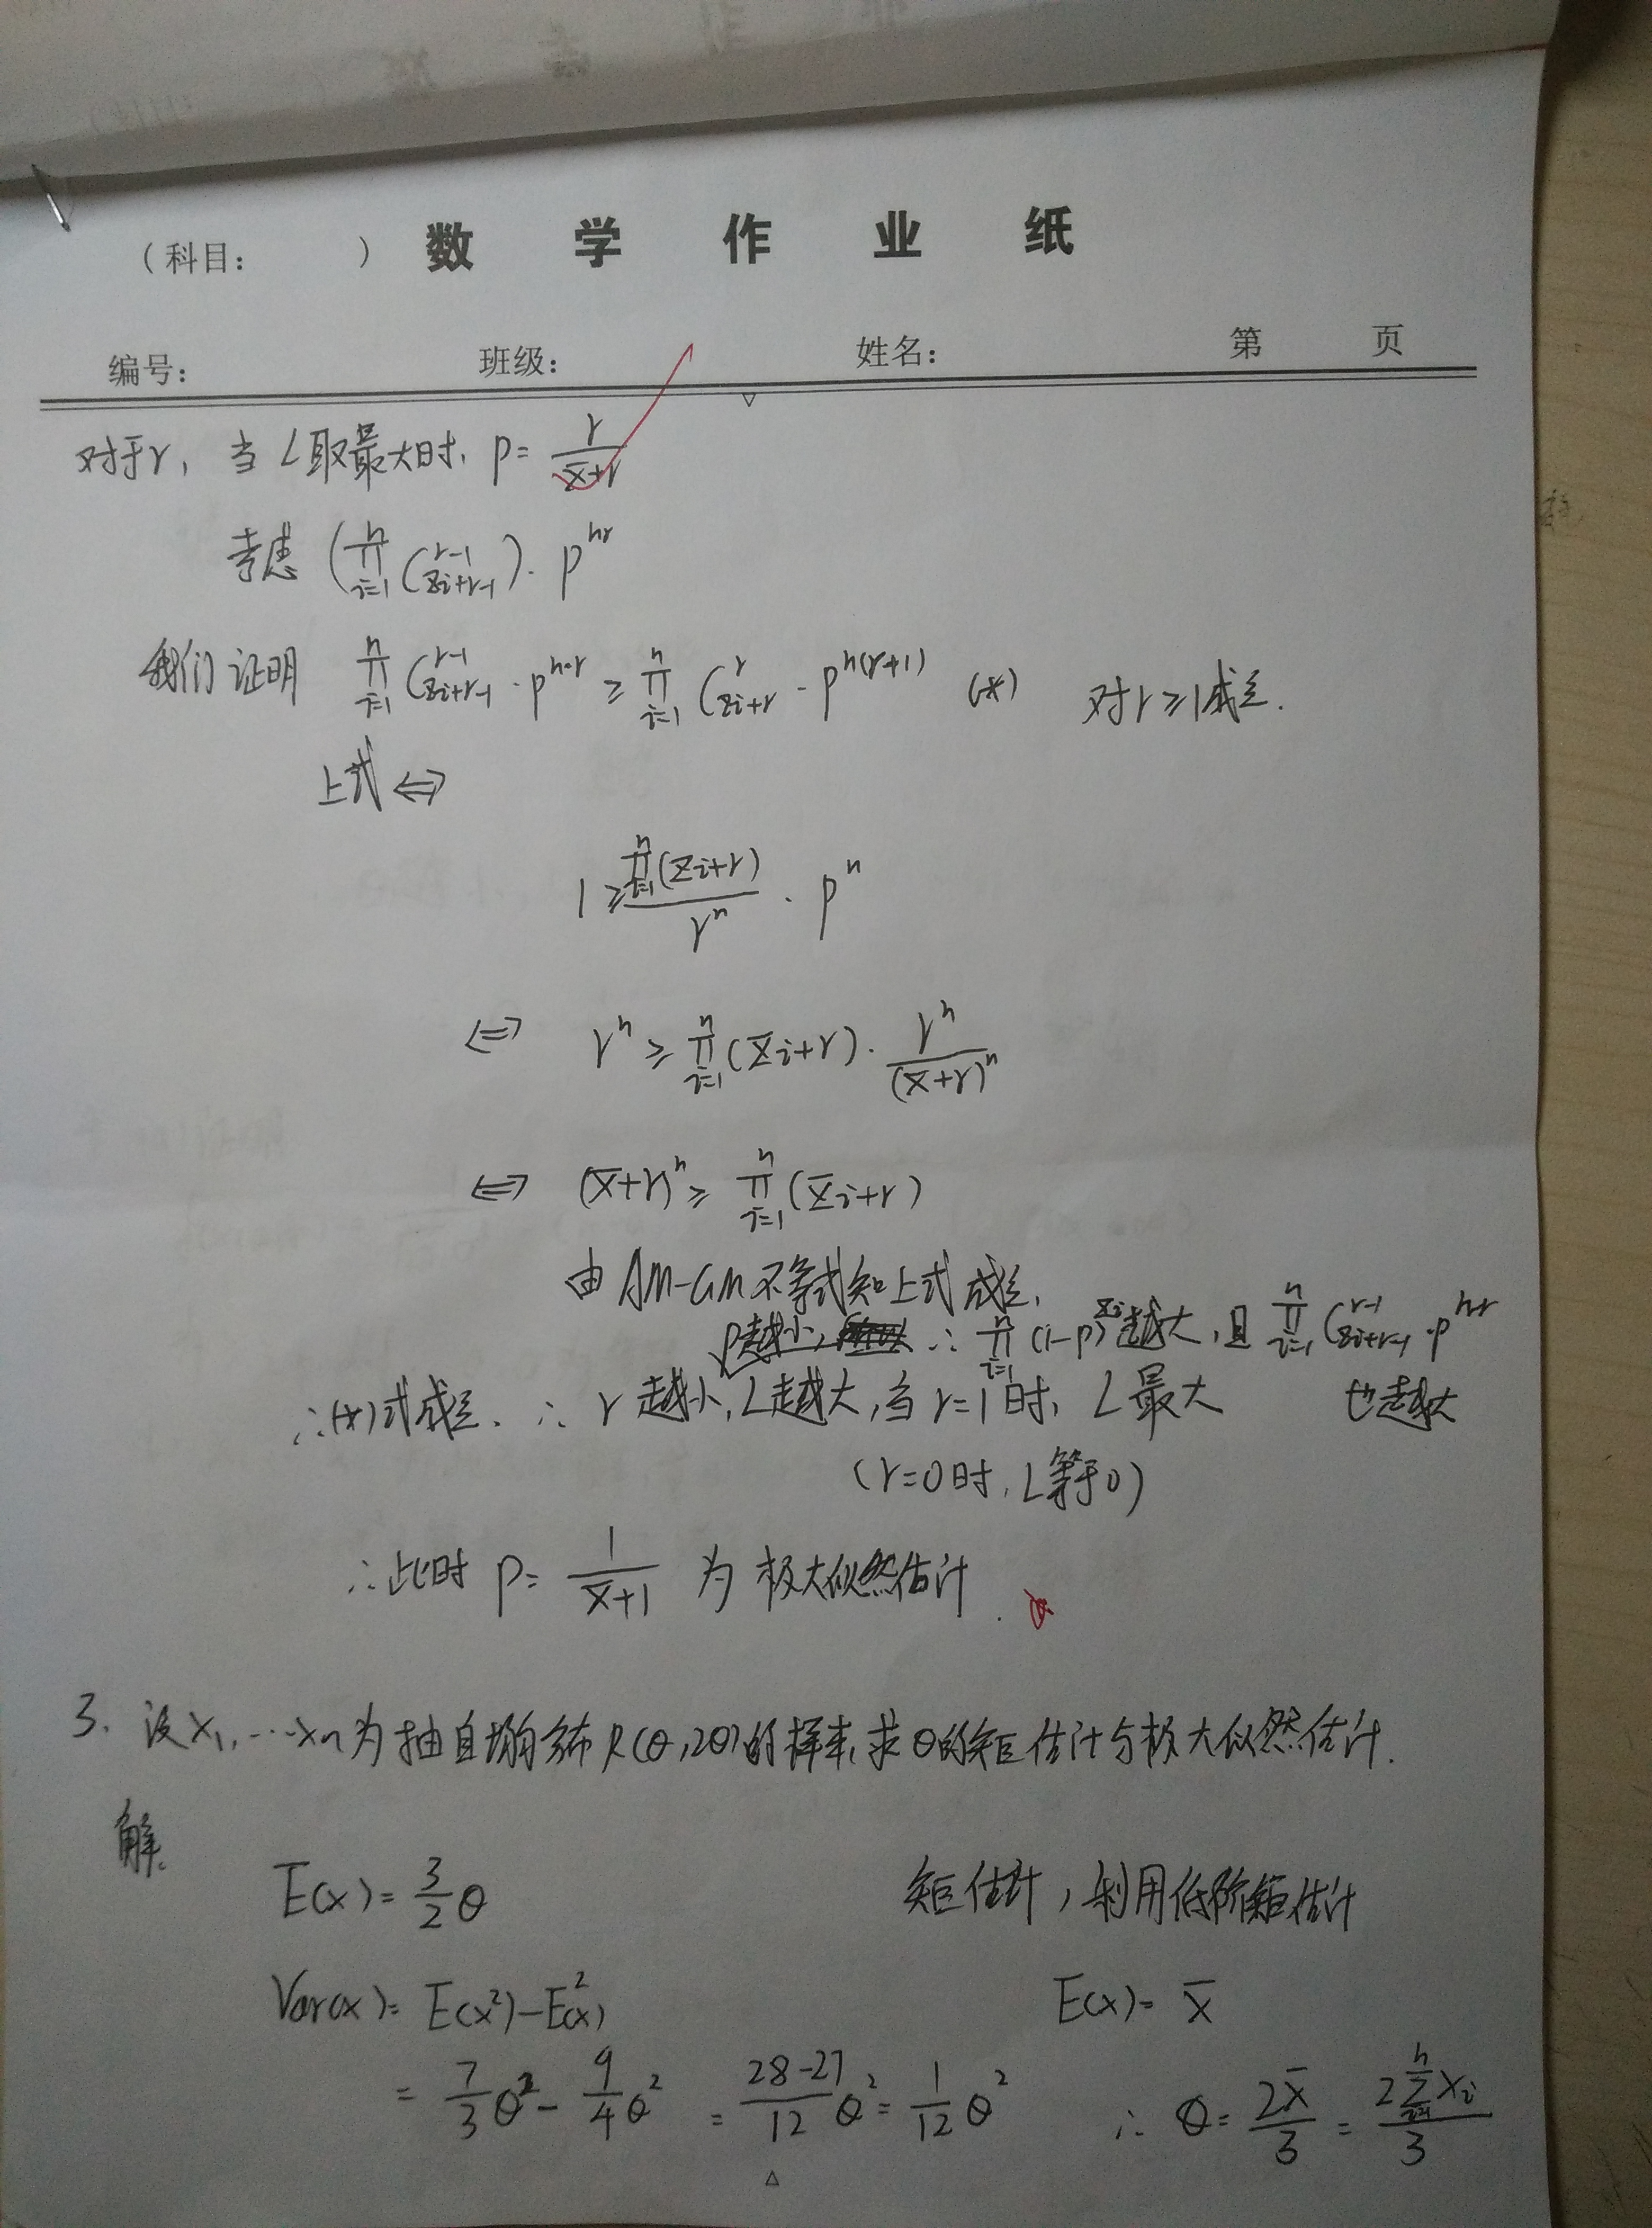 (科目: ) 数学作业纸
编号: 班级: 姓名: 第 页
对于r, 当L取最大时, p = \frac{r}{\bar{x}+r}
考虑 (\prod_{i=1}^{n} C_{x_i+r-1}^{r-1}) · p^{nr}
我们证明 \prod_{i=1}^{n} C_{x_i+r-1}^{r-1} · p^{n·r} ≥ \prod_{i=1}^{n} C_{x_i+r}^{r} · p^{n(r+1)} (*) 对r≥1成立.
上式 ⇔
1 ≥ \frac{\prod_{i=1}^{n}(x_i+r)}{r^n} · p^n
⇔ r^n ≥ \prod_{i=1}^{n}(x_i+r) · \frac{r^n}{(\bar{x}+r)^n}
⇔ (\bar{x}+r)^n ≥ \prod_{i=1}^{n}(x_i+r)
由AM-GM不等式知上式成立.
p越小, ∴ \prod_{i=1}^{n}(1-p)^{x_i}越大, 且 \prod_{i=1}^{n} C_{x_i+r-1}^{r-1} · p^{n·r}
∴(*)式成立. ∴ r越小, L越大, 当r=1时, L最大 也越大
(r=0时, L等于0)
∴此时 p = \frac{1}{\bar{x}+1} 为极大似然估计.
3. 设X_1, ⋯X_n为抽自均匀分布R(θ, 2θ)的样本, 求θ的矩估计与极大似然估计.
解.
E(x) = \frac{3}{2}θ 矩估计, 利用低阶矩估计
Var(x) = E(x^2) - E^2(x) E(x) = \bar{x}
= \frac{7}{3}θ^2 - \frac{9}{4}θ^2 = \frac{28-27}{12}θ^2 = \frac{1}{12}θ^2 ∴ θ = \frac{2\bar{x}}{3} = \frac{2\sum_{i=1}^{n}x_i}{3}